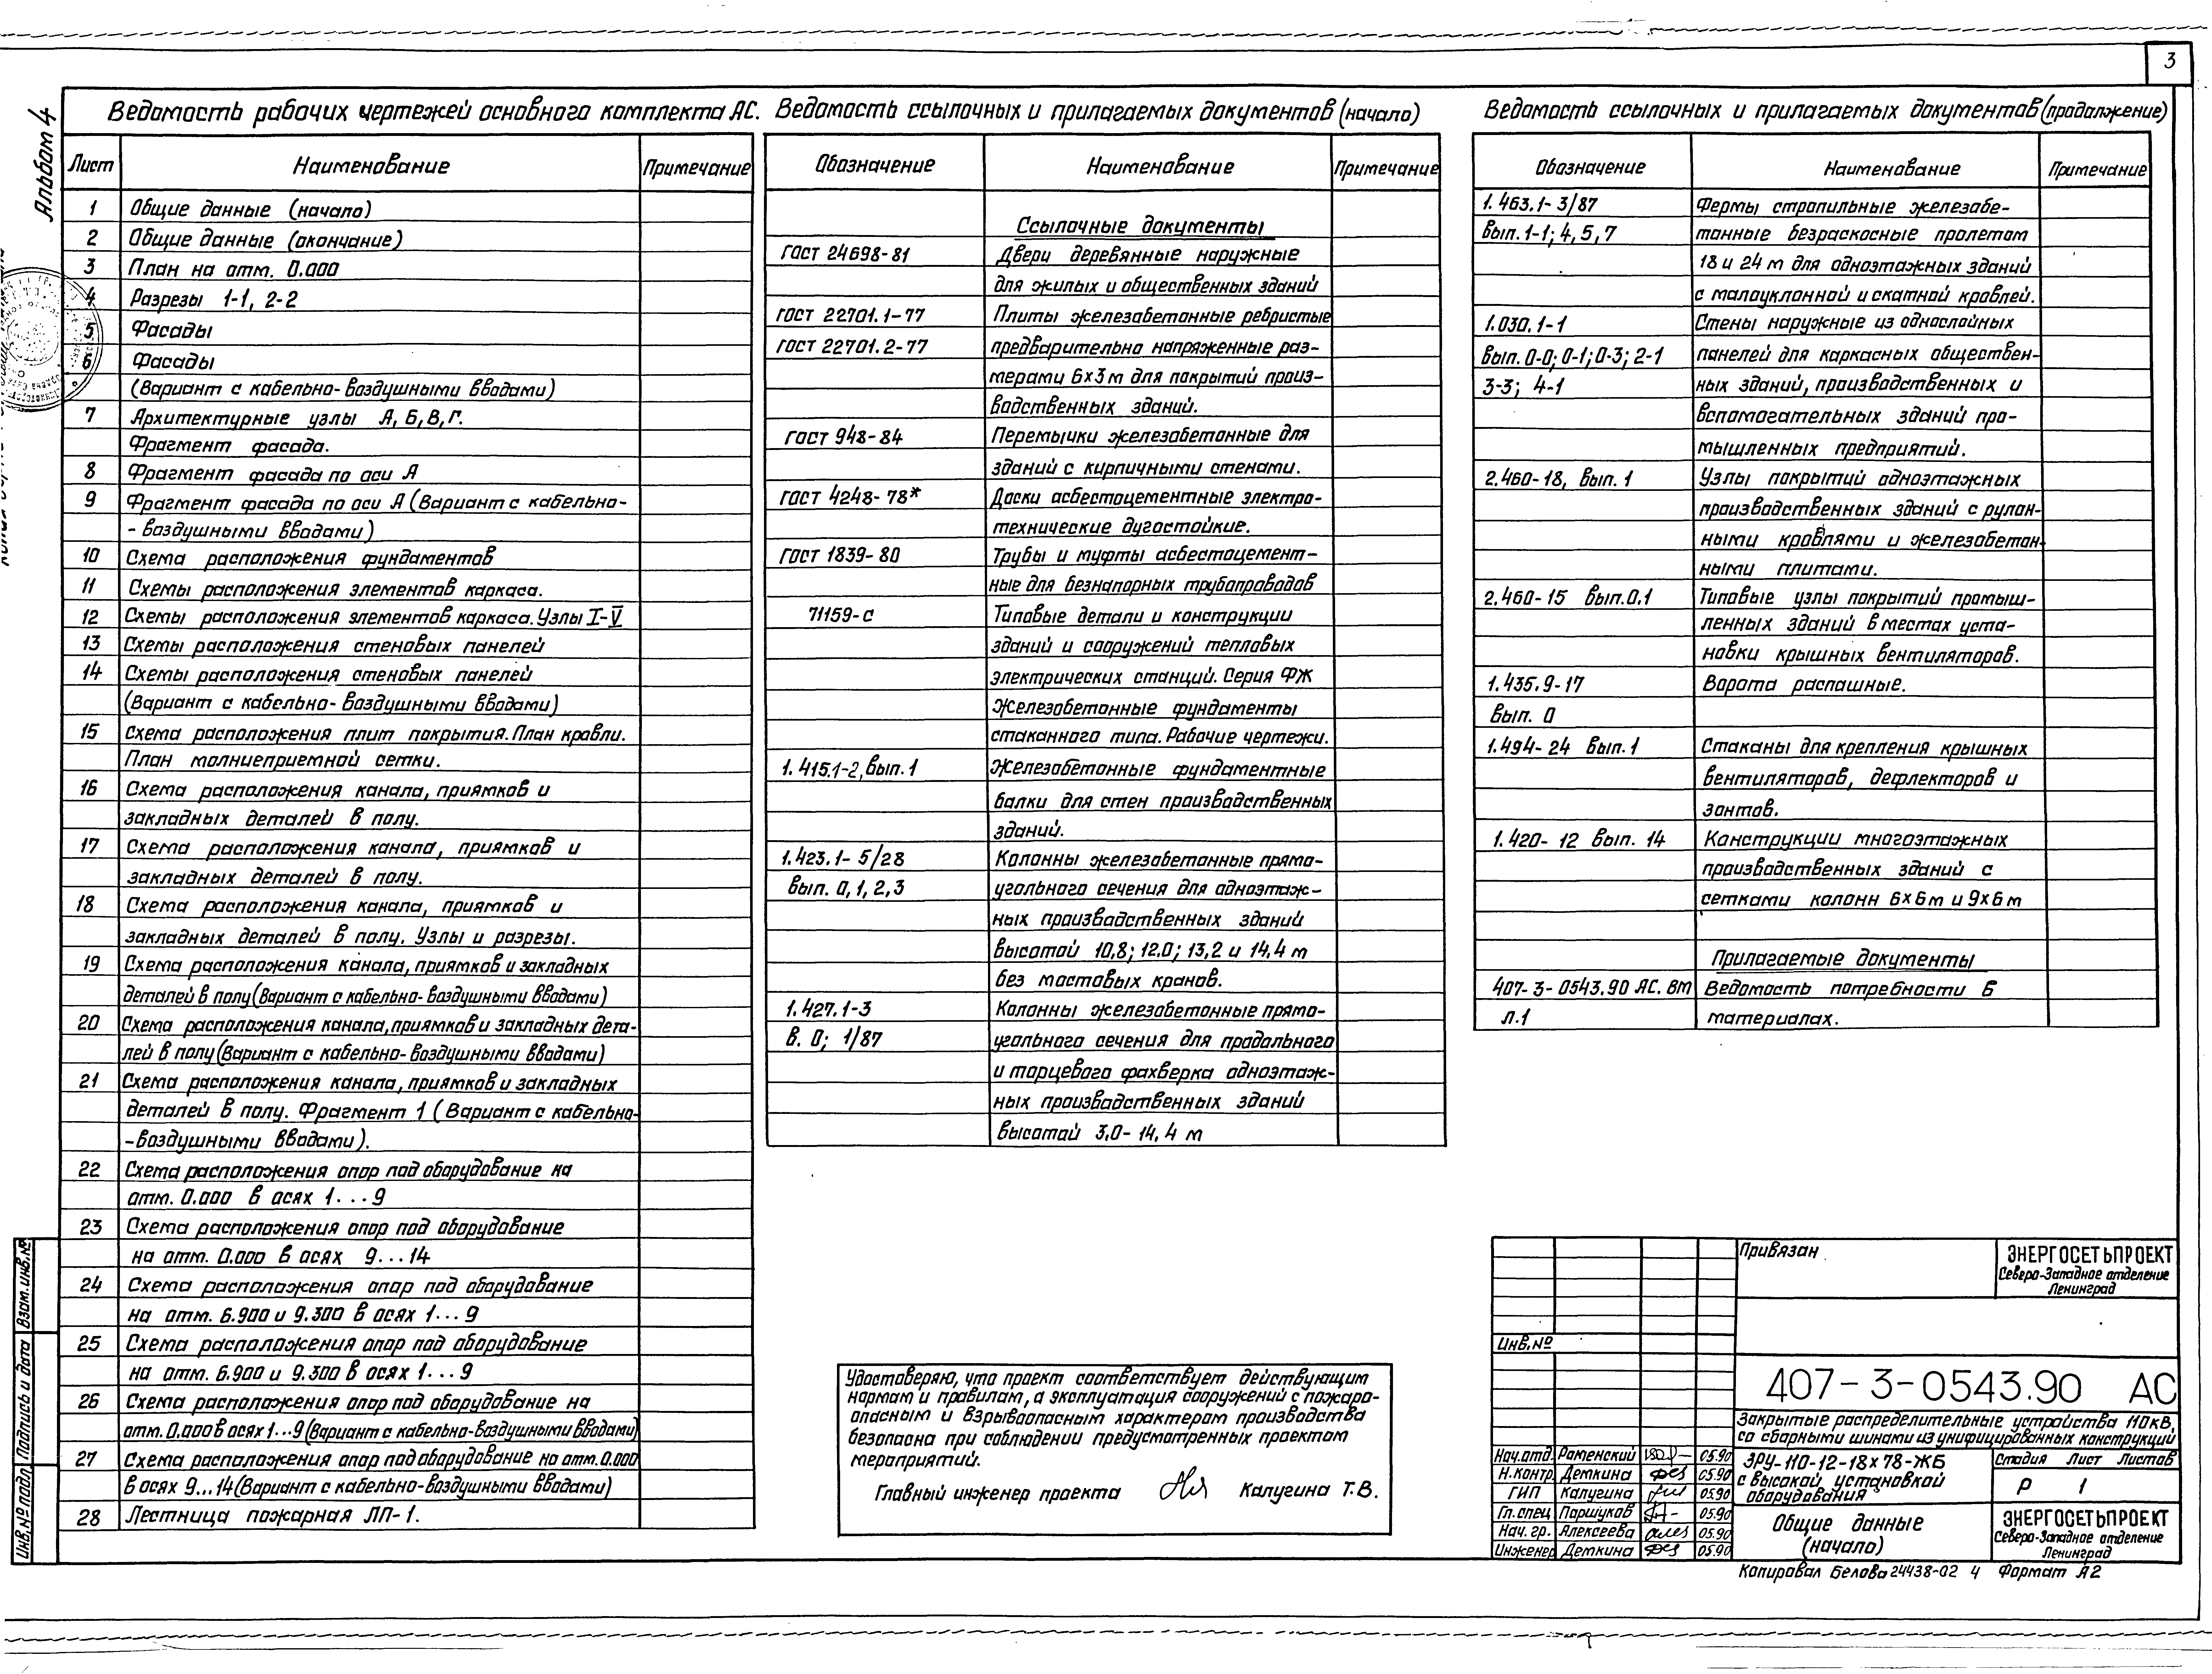 3
Альбом 4
Ведомость рабочих чертежей основного комплекта АС.
Лист Наименование Примечание
1 Общие данные (начало)
2 Общие данные (окончание)
3 План на отм. 0.000
4 Разрезы 1-1, 2-2
5 Фасады
6 Фасады
(Вариант с кабельно-воздушными вводами)
7 Архитектурные узлы А, Б, В, Г.
Фрагмент фасада.
8 Фрагмент фасада по оси А
9 Фрагмент фасада по оси А (Вариант с кабельно-
- воздушными вводами)
10 Схема расположения фундаментов
11 Схемы расположения элементов каркаса.
12 Схемы расположения элементов каркаса. Узлы I-V
13 Схемы расположения стеновых панелей
14 Схемы расположения стеновых панелей
(Вариант с кабельно-воздушными вводами)
15 Схема расположения плит покрытия. План кровли.
План молниеприемной сетки.
16 Схема расположения канала, приямков и
закладных деталей в полу.
17 Схема расположения канала, приямков и
закладных деталей в полу.
18 Схема расположения канала, приямков и
закладных деталей в полу. Узлы и разрезы.
19 Схема расположения канала, приямков и закладных
деталей в полу (Вариант с кабельно-воздушными вводами)
20 Схема расположения канала, приямков и закладных дета-
лей в полу (Вариант с кабельно-воздушными вводами)
21 Схема расположения канала, приямков и закладных
деталей в полу. Фрагмент 1 (Вариант с кабельно-
-воздушными вводами).
22 Схема расположения опор под оборудование на
отм. 0.000 в осях 1...9
23 Схема расположения опор под оборудование
на отм. 0.000 в осях 9...14
24 Схема расположения опор под оборудование
на отм. 6.900 и 9.300 в осях 1...9
25 Схема расположения опор под оборудование
на отм. 6.900 и 9.300 в осях 1...9
26 Схема расположения опор под оборудование на
отм. 0.000 в осях 1...9 (Вариант с кабельно-воздушными вводами)
27 Схема расположения опор под оборудование на отм. 0.000
в осях 9...14 (Вариант с кабельно-воздушными вводами)
28 Лестница пожарная ЛП-1.
Ведомость ссылочных и прилагаемых документов (начало)
Обозначение Наименование Примечание
Ссылочные документы
ГОСТ 24698-81 Двери деревянные наружные
для жилых и общественных зданий
ГОСТ 22701.1-77 Плиты железобетонные ребристые
ГОСТ 22701.2-77 предварительно напряженные раз-
мерами 6×3м для покрытий произ-
водственных зданий.
ГОСТ 948-84 Перемычки железобетонные для
зданий с кирпичными стенами.
ГОСТ 4248-78* Доски асбестоцементные электро-
технические дугостойкие.
ГОСТ 1839-80 Трубы и муфты асбестоцемент-
ные для безнапорных трубопроводов
71159-с Типовые детали и конструкции
зданий и сооружений тепловых
электрических станций. Серия ФЖ
Железобетонные фундаменты
стаканного типа. Рабочие чертежи.
1.415.1-2, вып. 1 Железобетонные фундаментные
балки для стен производственных
зданий.
1.423.1-5/28 Колонны железобетонные прямо-
вып. 0, 1, 2, 3 угольного сечения для одноэтаж-
ных производственных зданий
высотой 10,8; 12.0; 13,2 и 14,4 м
без мостовых кранов.
1.427.1-3 Колонны железобетонные прямо-
в. 0; 1/87 угольного сечения для продольного
и торцевого фахверка одноэтаж-
ных производственных зданий
высотой 3,0-14,4 м
Ведомость ссылочных и прилагаемых документов (продолжение)
Обозначение Наименование Примечание
1.463.1-3/87 Фермы стропильные железобе-
вып. 1-1; 4, 5, 7 тонные безраскосные пролетом
18 и 24 м для одноэтажных зданий
с малоуклонной и скатной кровлей.
1.030.1-1 Стены наружные из однослойных
вып. 0-0; 0-1; 0-3; 2-1 панелей для каркасных обществен-
3-3; 4-1 ных зданий, производственных и
вспомогательных зданий про-
мышленных предприятий.
2.460-18, вып. 1 Узлы покрытий одноэтажных
производственных зданий с рулон-
ными кровлями и железобетон-
ными плитами.
2.460-15 вып. 0.1 Типовые узлы покрытий промыш-
ленных зданий в местах уста-
новки крышных вентиляторов.
1.435.9-17 Ворота распашные.
вып. 0
1.494-24 вып. 1 Стаканы для крепления крышных
вентиляторов, дефлекторов и
зонтов.
1.420-12 вып. 14 Конструкции многоэтажных
производственных зданий с
сетками колонн 6×6м и 9×6м
Прилагаемые документы
407-3-0543.90 АС. ВМ Ведомость потребности в
л.1 материалах.
Удостоверяю, что проект соответствует действующим
нормам и правилам, а эксплуатация сооружений с пожаро-
опасным и взрывоопасным характером производства
безопасна при соблюдении предусмотренных проектом
мероприятий.
Главный инженер проекта Калугина Т.В.
Привязан
ЭНЕРГОСЕТЬПРОЕКТ
Северо-Западное отделение
Ленинград
Инв. №
407-3-0543.90 АС
Закрытые распределительные устройства 110кВ,
со сборными шинами из унифицированных конструкций
Нач.отд. Роменский 05.90
Н.контр. Демкина 05.90
ГИП Калугина 05.90
Гл.спец. Паршуков 05.90
Нач. гр. Алексеева 05.90
Инженер Демкина 05.90
ЗРУ-110-12-18×78-ЖБ
с высокой установкой
оборудования
Стадия Лист Листов
Р 1
Общие данные
(начало)
ЭНЕРГОСЕТЬПРОЕКТ
Северо-Западное отделение
Ленинград
Копировал Белова 24438-02 4 Формат А2
Инв. № подл. Подпись и дата Взам. инв. №